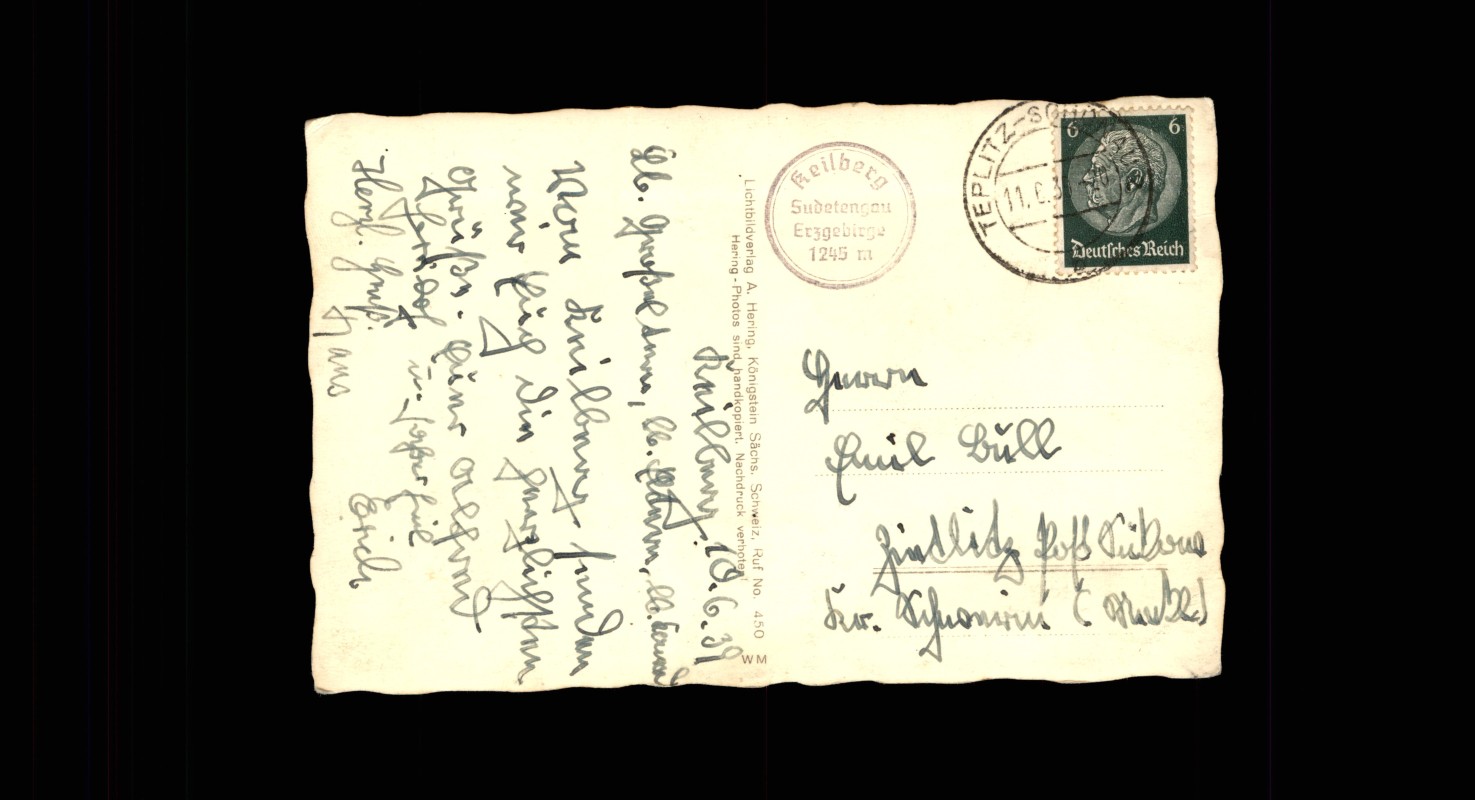 Keilberg 10.6.39
Lb. Großeltern, lb. Eltern, lb.
Vom Keilberg senden
wir Euch die herzlichsten
Grüße. Euer
Gerhard u.
Herzl. Gruß.
Hans
Erich
Lichtbildverlag A. Hering, Königstein Sächs. Schweiz, Ruf No. 450
Hering-Photos sind handkopiert. Nachdruck verboten!
WM
Keilberg
Sudetengau
Erzgebirge
1245 m
TEPLITZ-SCHÖNAU
11.6.3
6 6
Deutsches Reich
Herrn
Emil Büll
Zietlitz Post Sükow
Kr. Schwerin (Meckl.)